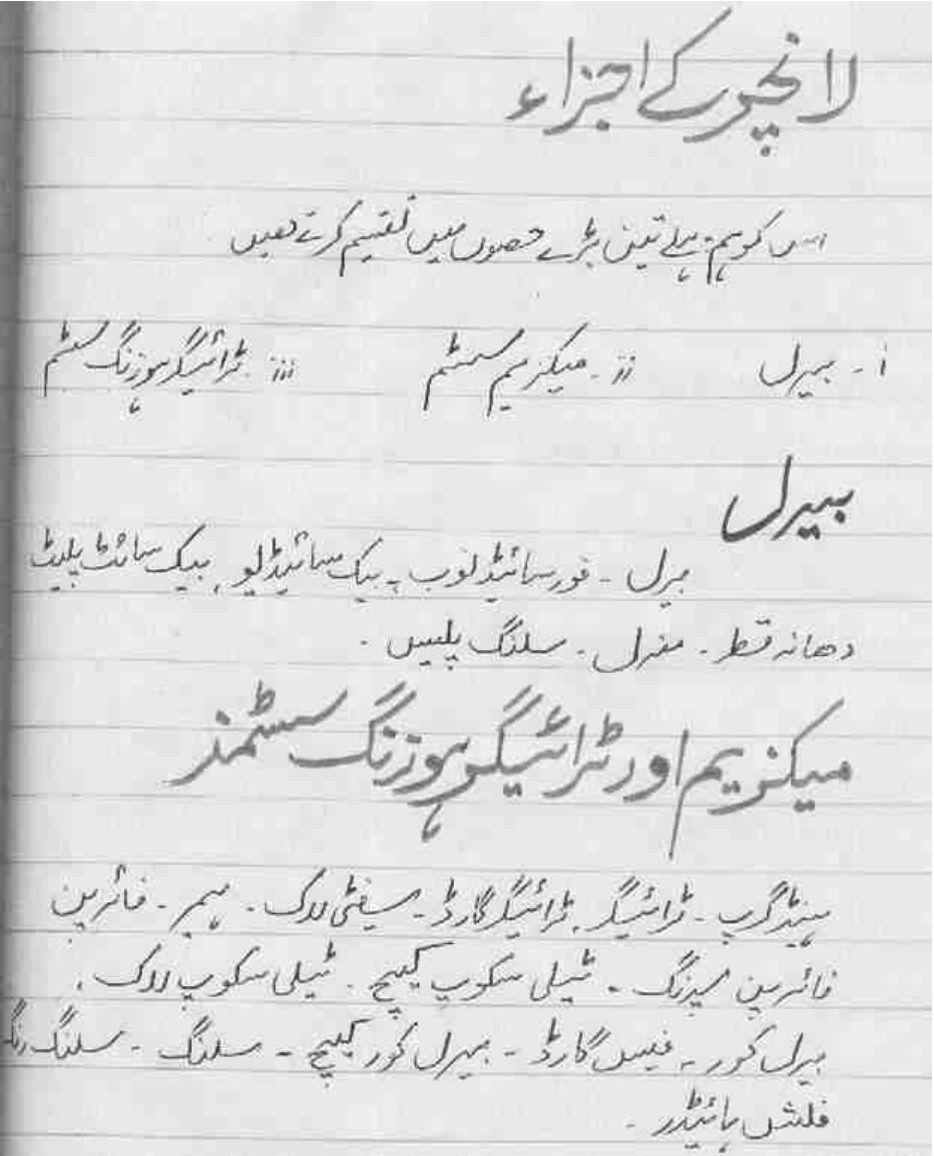 لانچر کے اجزاء
اس کو ہم پہلے تین بڑے حصوں میں تقسیم کرتے ھیں
i - بیرل ii - میکنزیم سسٹم iii - ٹرائیگر ہوزنگ سسٹم
بیرل
بیرل - فور سائیڈ لوب - بیک سائیڈ لیو - بیک سائٹ پلیٹ
دھانہ قطر - مزل - سلنگ پلیس -
میکنزیم اور ٹرائیگر ہوزنگ سسٹمز
ہینڈ گرپ - ٹرائیگر - ٹرائیگر گارڈ - سیفٹی لاک - ہیمر - فائرپن
فائرپن سپرنگ - ٹیلی سکوپ کیچ - ٹیلی سکوپ لاک -
بیرل کور - فیس گارڈ - بیرل کور کیچ - سلنگ - سلنگ رنگ
فلش ہائیڈر -